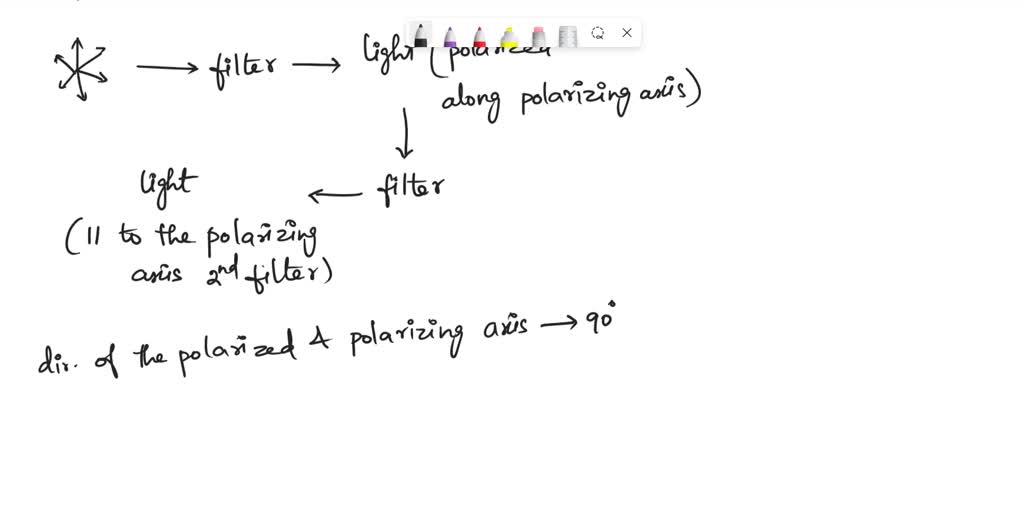 ⟶ filter ⟶ light (polarized
along polarizing axis)
light ⟵ filter
(|| to the polarizing
axis 2nd filter)
dir. of the polarized & polarizing axis → 90°